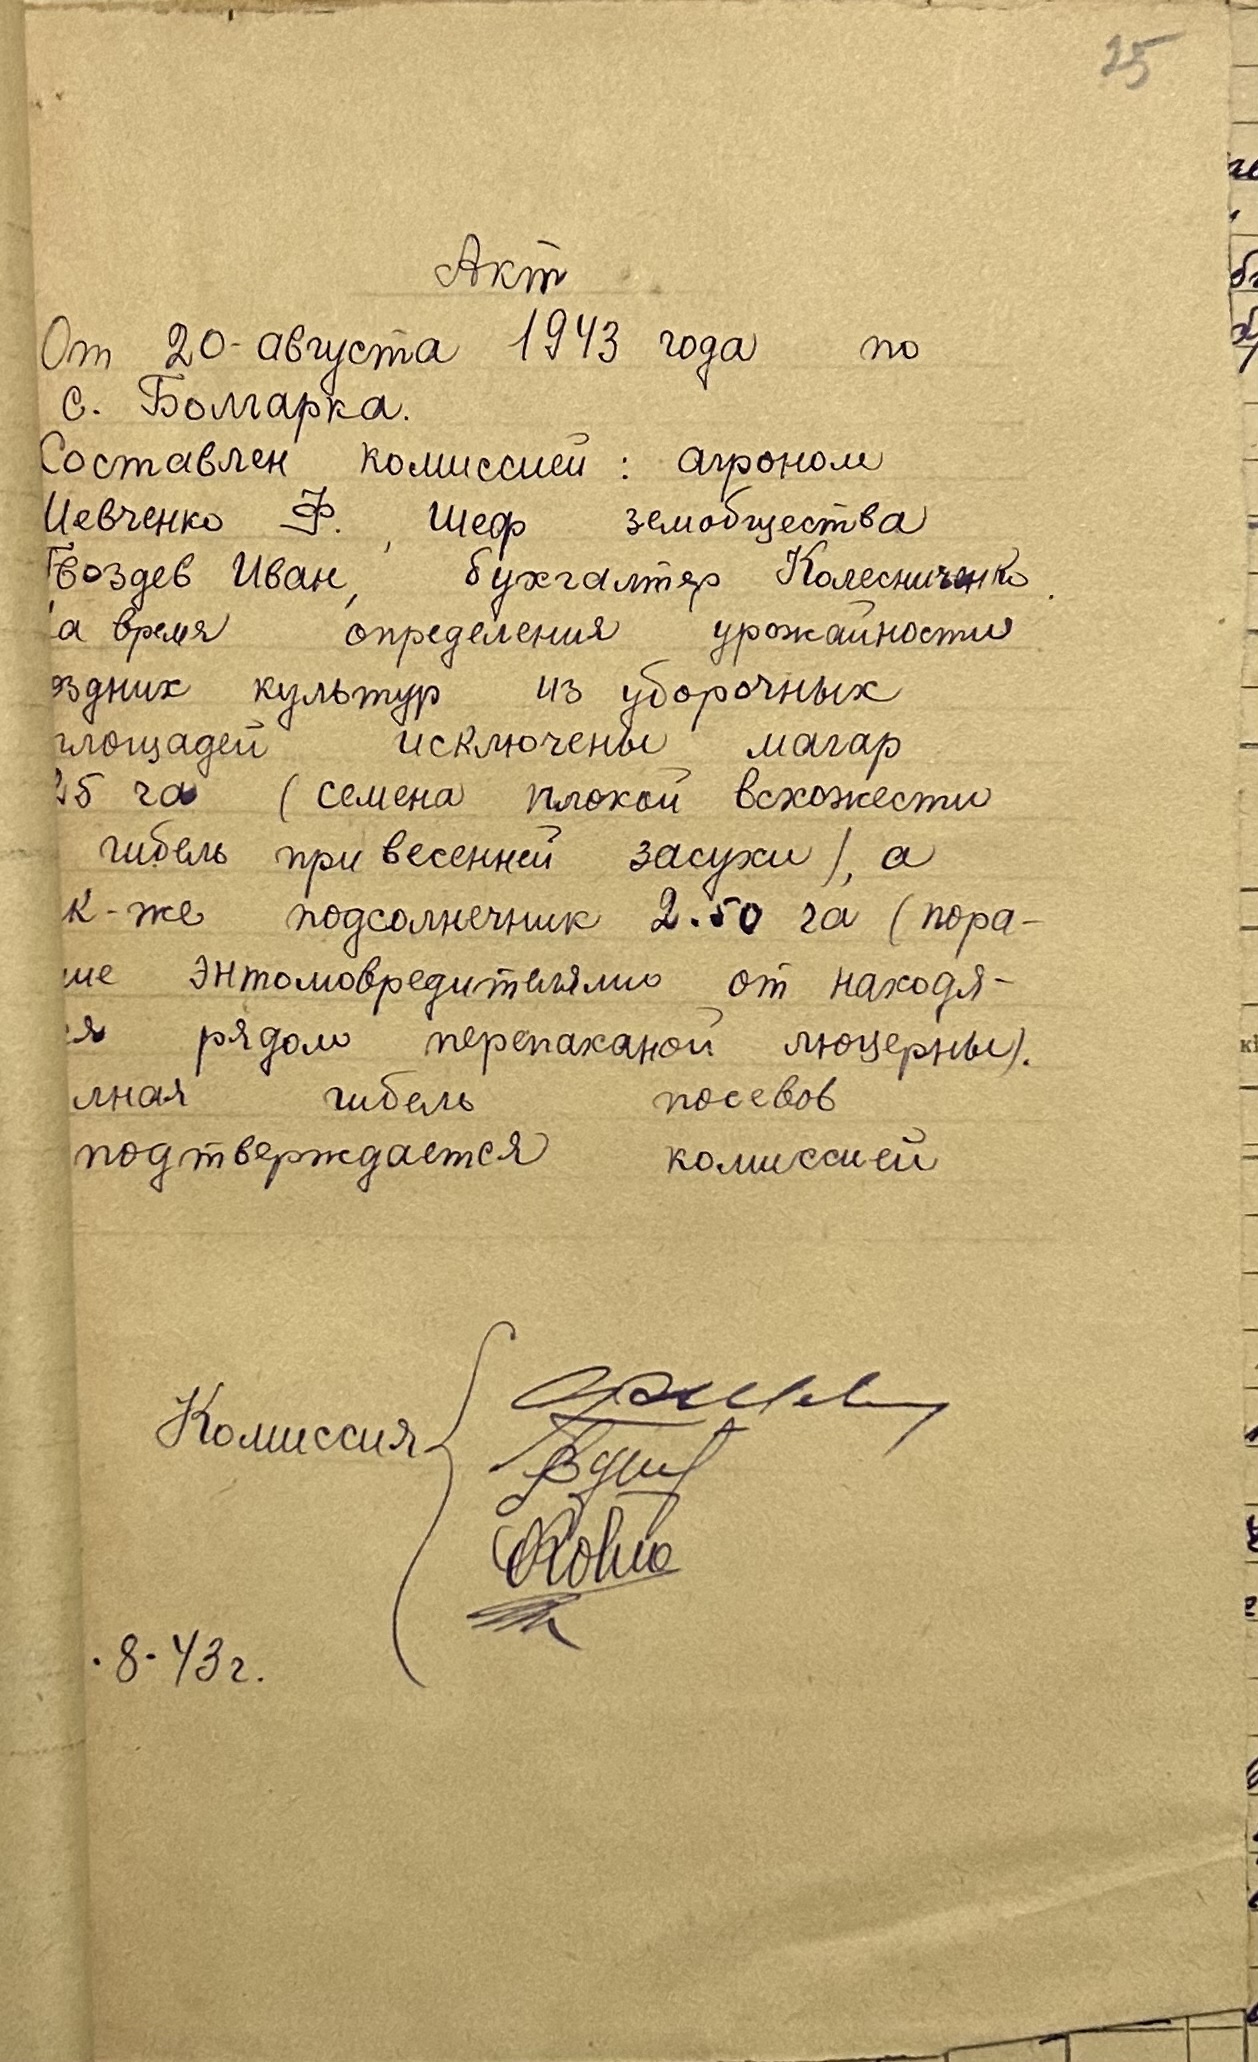 25
Акт
От 20-августа 1943 года по
с. Болгарка.
Составлен комиссией: агроном
Шевченко Ф., Шеф земобщества
Гвоздев Иван, бухгалтер Колесниченко.
а время определения урожайности
оздних культур из уборочных
площадей исключены магар
25 га (семена плохой всхожести
гибель при весенней засухи), а
к-же подсолнечник 2.50 га (пора-
ние энтомовредителями от находя-
ся рядом перепаханой люцерны).
лная гибель посевов
подтверждается комиссией
Комиссия
.8-43г.